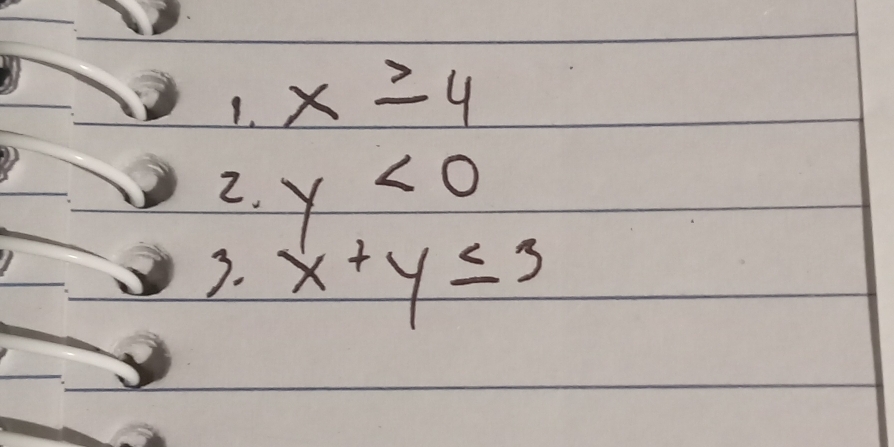 1. x ≥ 4
2. y < 0
3. x + y ≤ 3